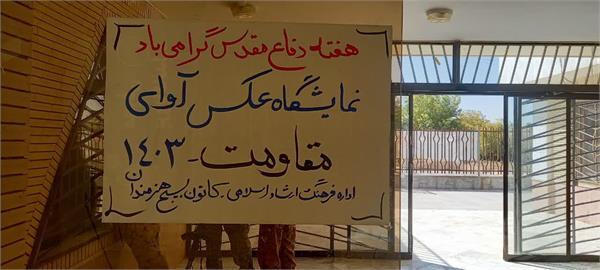 هفته دفاع مقدس گرامی باد
نمایشگاه عکس آوای
مقاومت - ۱۴۰۳
اداره فرهنگ و ارشاد اسلامی - کانون بسیج هنرمندان